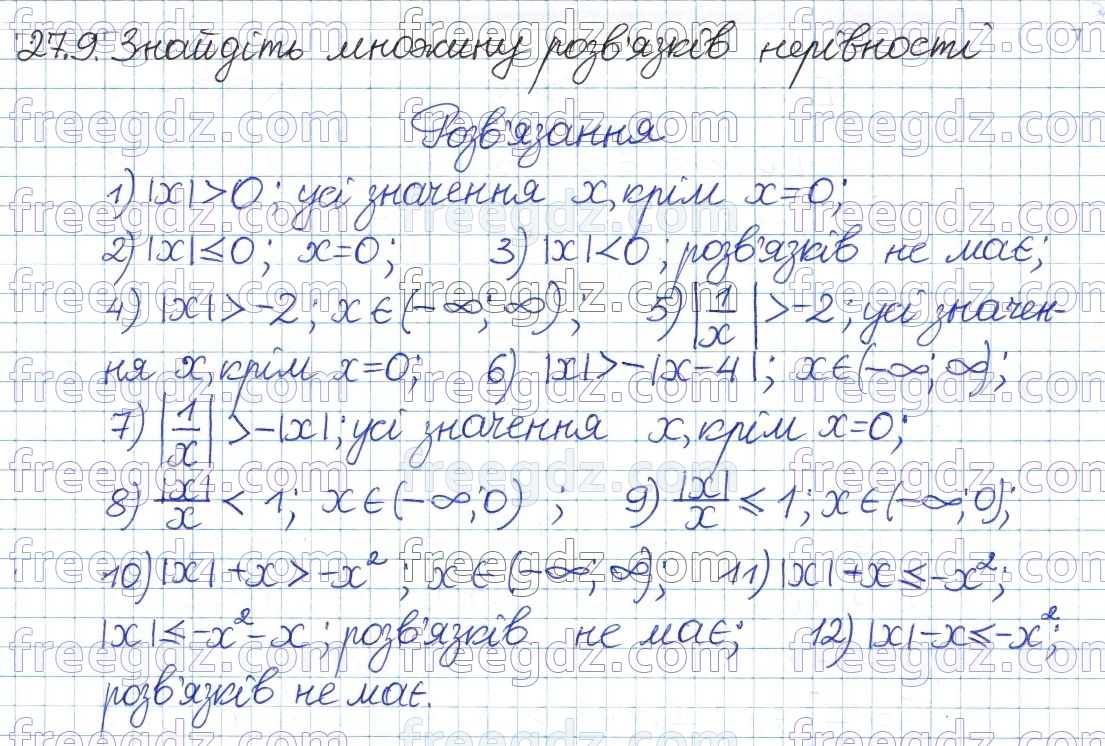 27.9. Знайдіть множину розв'язків нерівності
Розв'язання
1) |x|>0; усі значення x, крім x=0;
2) |x|≤0; x=0; 3) |x|<0; розв'язків не має;
4) |x|>-2; x∈(-∞;∞); 5) |1/x|>-2; усі значен-
ня x, крім x=0; 6) |x|>-|x-4|; x∈(-∞;∞);
7) |1/x|>-|x|; усі значення x, крім x=0;
8) |x|/x<1; x∈(-∞;0); 9) |x|/x≤1; x∈(-∞;0);
10) |x|+x>-x²; x∈(-∞;∞); 11) |x|+x≤-x²;
|x|≤-x²-x; розв'язків не має; 12) |x|-x≤-x²;
розв'язків не має.
freegdz.com